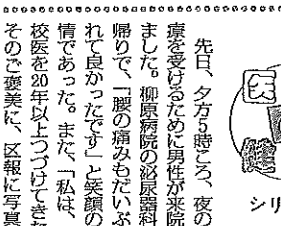 先日、夕方5時ころ、夜の
療を受けるために男性が来院
ました。柳原病院の泌尿器科
帰りで、「腰の痛みもだいぶ
れて良かったです」と笑顔の
情であった。また、「私は、
校医を20年以上つづけてきた
そのご褒美に、区報に写真
シリ